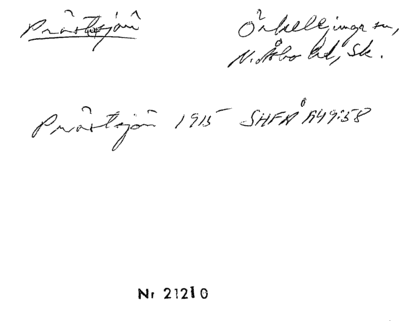 Prästsjön
Örkelljunga sn,
N. Åsbo hd, Sk.
Prästsjön 1915 SHFÅ A49:58
Nr 21210